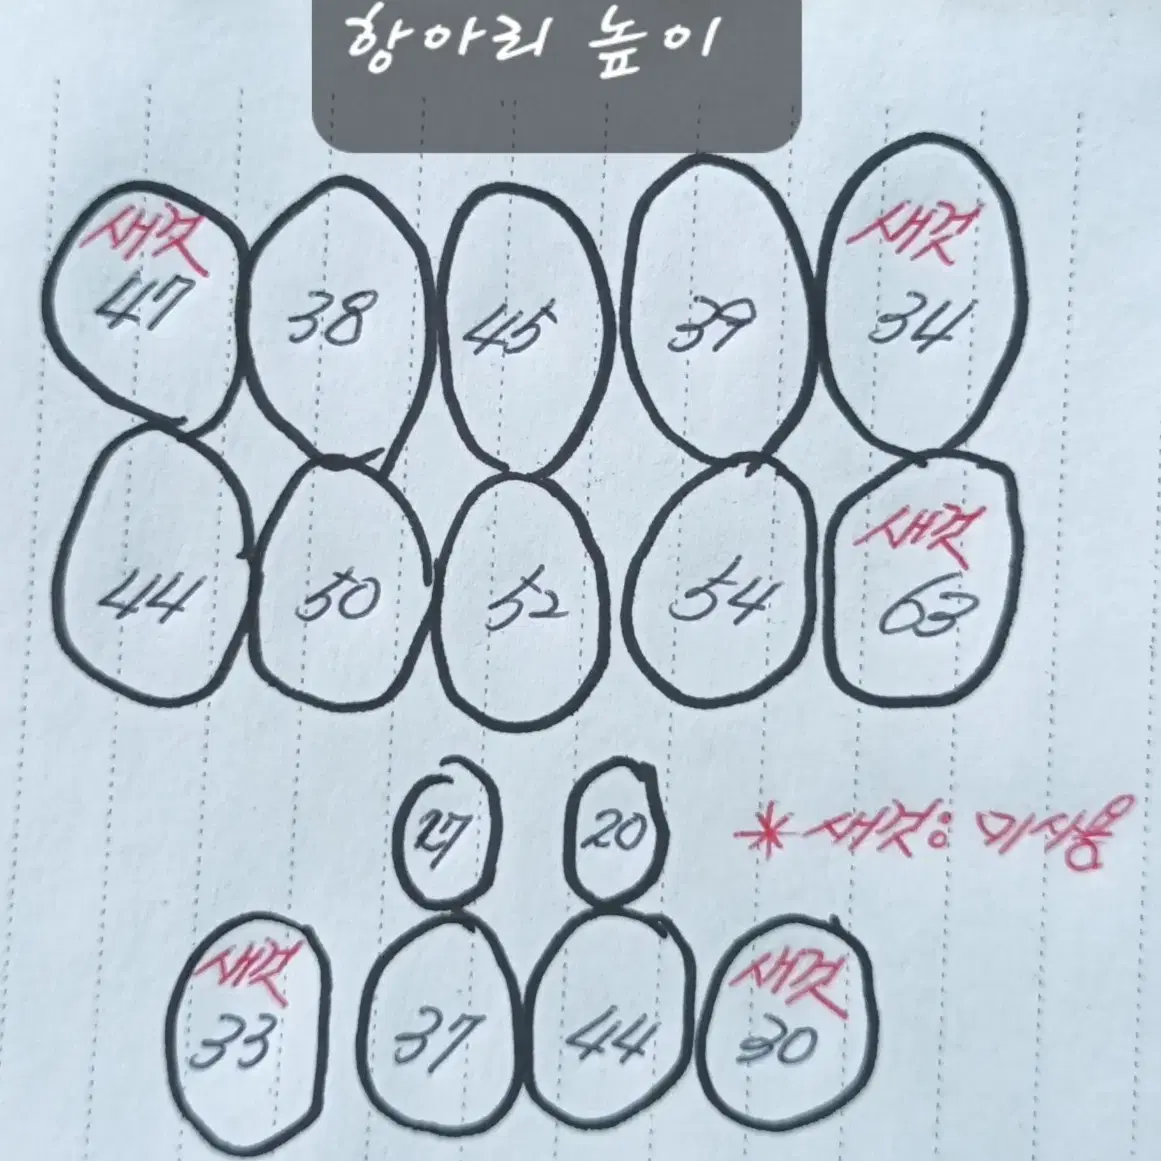 항아리 높이
새것 새것
47 38 45 39 34
새것
44 50 52 54 63
27 20 *새것: 미사용
새것 새것
33 37 44 30